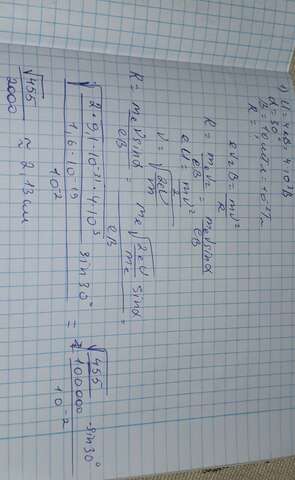 1) U = 4 кВ = 4·10³В
α = 30°
B = 10 мТл = 10⁻²Тл
R = ?
eV₂B = mV²/R
R = mₑV₂/eB = mₑVsinα/eB
eU = mV²/2
V = √(2eU/m)
R = mₑVsinα/eB = mₑ√(2eU/mₑ) sinα/eB =
√(2·9,1·10⁻³¹·4·10³/1,6·10⁻¹⁹) sin30°/10⁻² = √(455/100000)·sin30°/10⁻²
√455/2000 ≈ 2,13 см